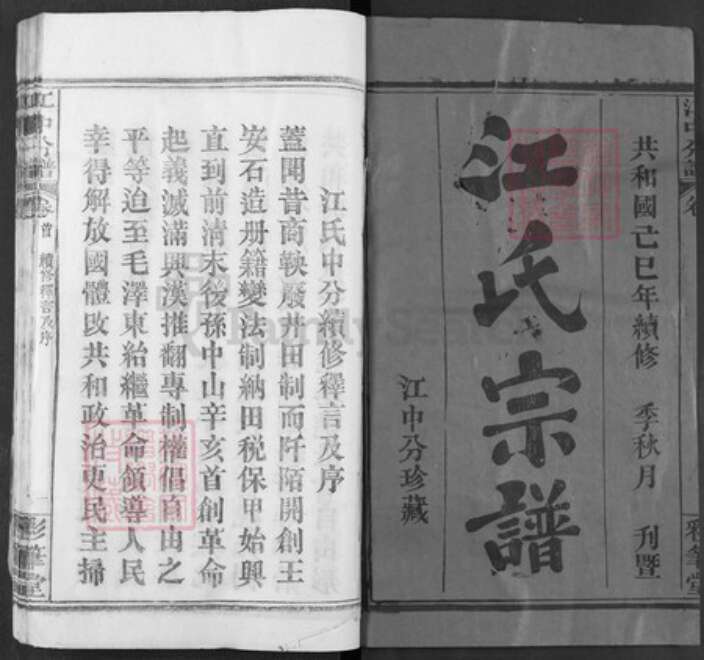 共和國己巳年續修 季秋月 刊暨
江氏宗譜
江中分珍藏
彩筆堂
江氏中分續修釋言及序
蓋聞昔商鞅廢井田制而阡陌開創王
安石造册籍變法制納田税保甲始興
直到前清末後孫中山辛亥首創革命
起義滅滿興漢推翻專制權倡自由之
平等迫至毛澤東紿繼革命領導人民
幸得解放國體改共和政治更民主掃
江中分譜
卷首 續修釋言及序
彩筆堂